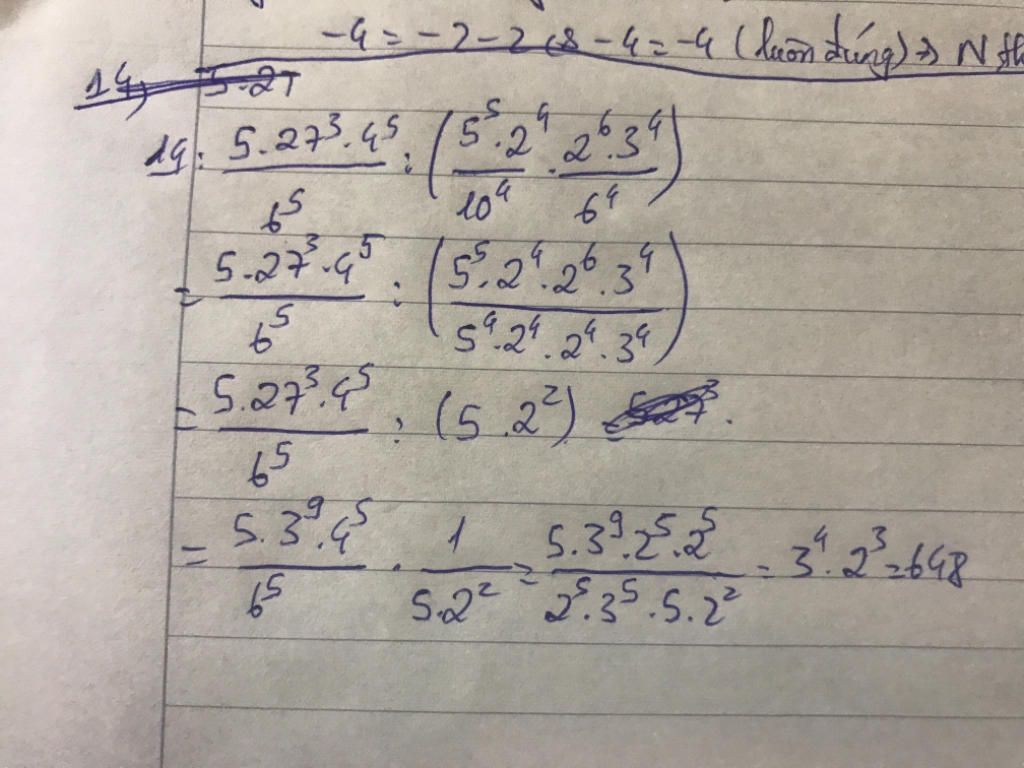 -4 = -2 - 2 (=) -4 = -4 (luôn đúng) =>
14, 5.27
14: 5.27³.4⁵/6⁵ : (5⁵.2⁴/10⁴ . 2⁶.3⁴/6⁴)
= 5.27³.4⁵/6⁵ : (5⁵.2⁴.2⁶.3⁴/5⁴.2⁴.2⁴.3⁴)
= 5.27³.4⁵/6⁵ : (5.2²)
= 5.3⁹.4⁵/6⁵ . 1/5.2² = 5.3⁹.2⁵.2⁵/2⁵.3⁵.5.2² = 3⁴.2³ = 648